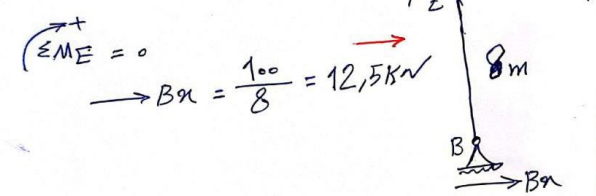 E
+
ΣM_E = 0
8m
→ Bx = 100/8 = 12,5 KN
B
Bx